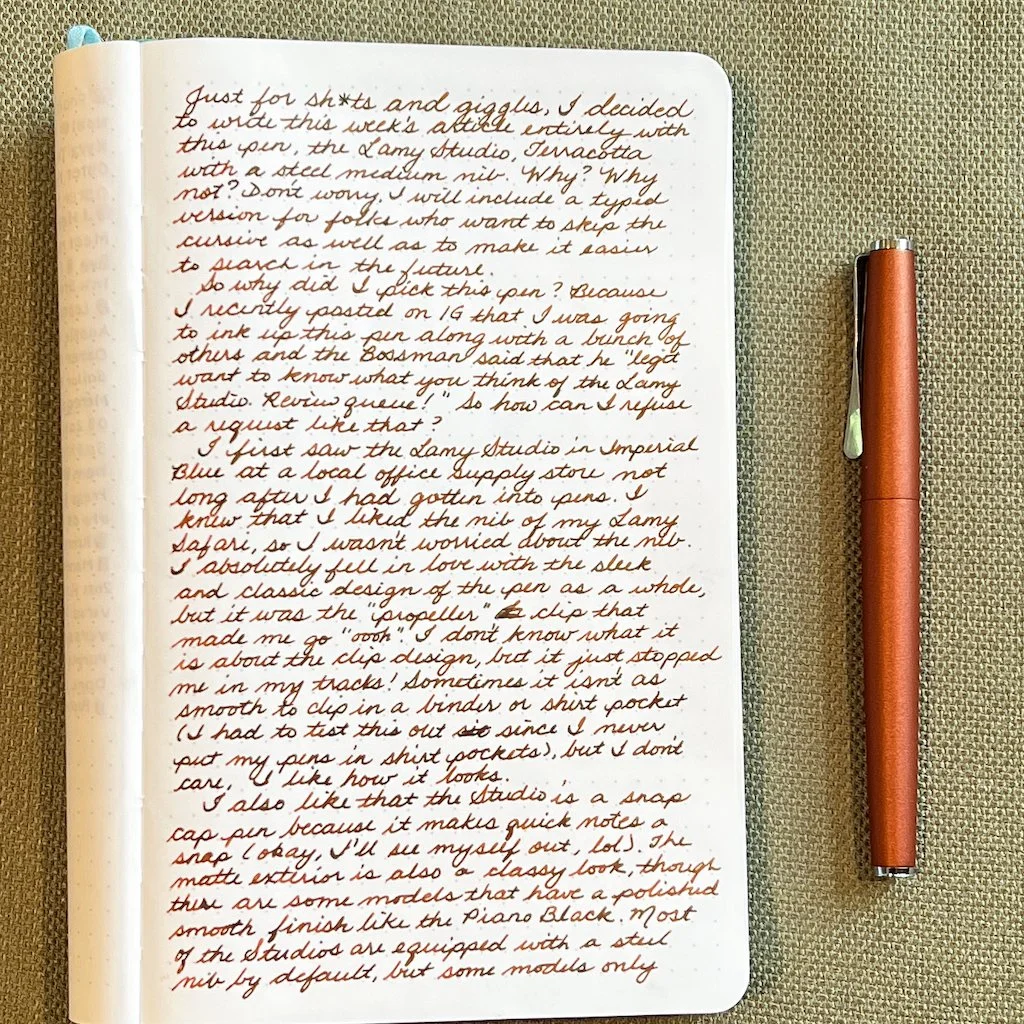 Just for sh*ts and giggles, I decided
to write this week's article entirely with
this pen, the Lamy Studio, Terracotta
with a steel medium nib. Why? Why
not? Don't worry, I will include a typed
version for folks who want to skip the
cursive as well as to make it easier
to search in the future.
So why did I pick this pen? Because
I recently posted on IG that I was going
to ink up this pen along with a bunch of
others and the Bossman said that he "legit
want to know what you think of the Lamy
Studio. Review queue!" So how can I refuse
a request like that?
I first saw the Lamy Studio in Imperial
Blue at a local office supply store not
long after I had gotten into pens. I
knew that I liked the nib of my Lamy
Safari, so I wasn't worried about the nib.
I absolutely fell in love with the sleek
and classic design of the pen as a whole,
but it was the "propeller" clip that
made me go "oooh". I don't know what it
is about the clip design, but it just stopped
me in my tracks! Sometimes it isn't as
smooth to clip in a binder or shirt pocket
(I had to test this out since I never
put my pens in shirt pockets), but I don't
care, I like how it looks.
I also like that the Studio is a snap
cap pen because it makes quick notes a
snap (okay, I'll see myself out, lol). The
matte exterior is also a classy look, though
there are some models that have a polished
smooth finish like the Piano Black. Most
of the Studios are equipped with a steel
nib by default, but some models only